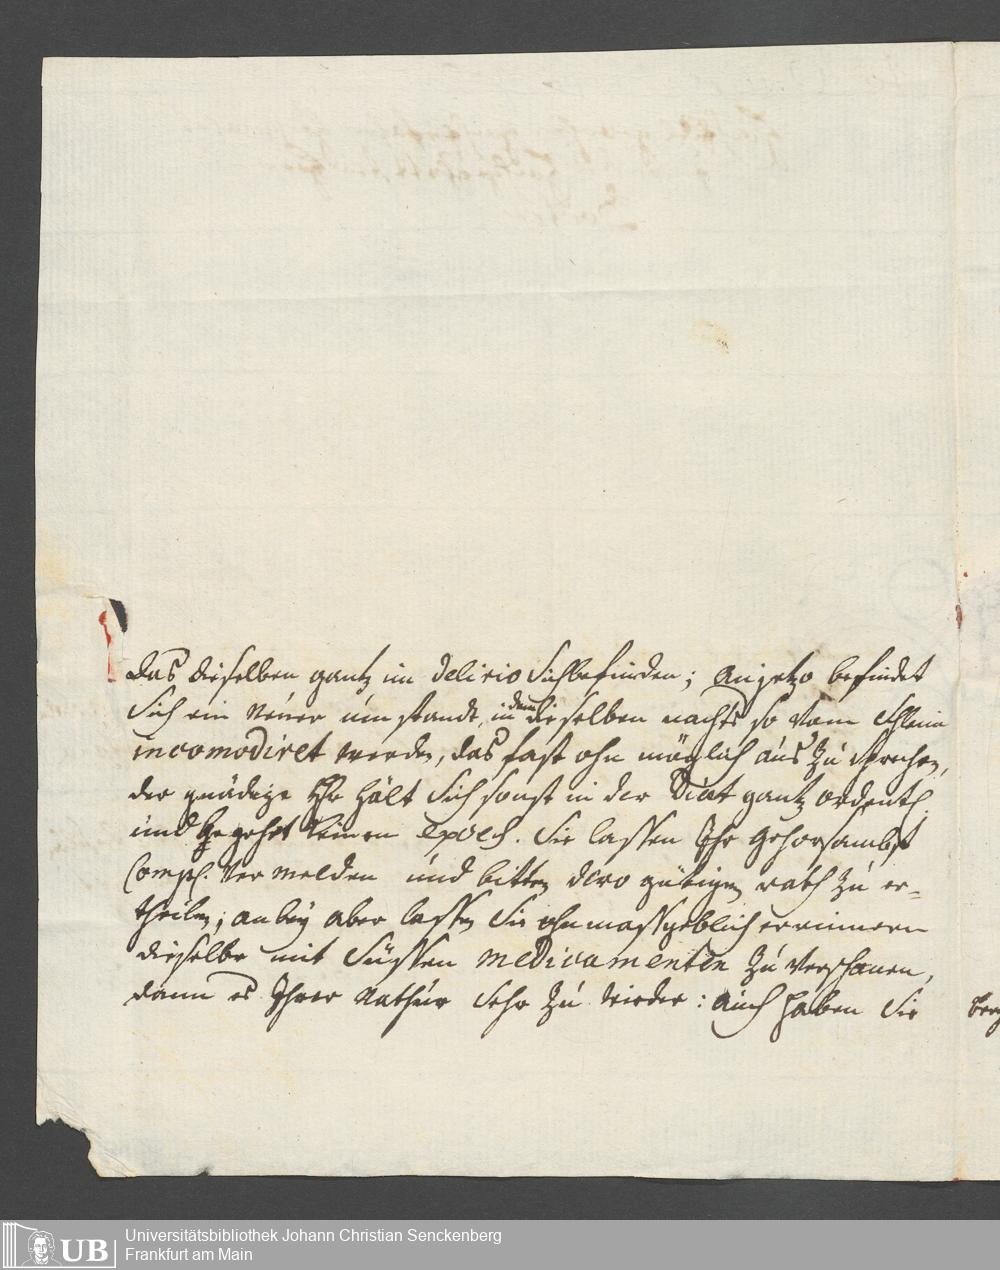 das dieselben gantz im delirio Sich befinden; anjetzo befindet
Sich ein neüer umstandt, indem dieselben nachts so vom Schleim
incomodiret werden, das fast ohn möglich aus zu sprechen,
der gnädige Hr hält Sich sonst in der Diät gantz ordentl.
und begehet keinen exceß. Sie lassen Ihr gehorsambst
Compl. vermelden und bitten dero gütigen rath zu er-
theilen; anbey aber lassen Sie ohnmassgeblich erinnern
dieselbe mit Süssen medicamenten zu verschonen,
dann es Ihrer Nathur sehr zu wieder: auch haben Sie
UB
Universitätsbibliothek Johann Christian Senckenberg
Frankfurt am Main